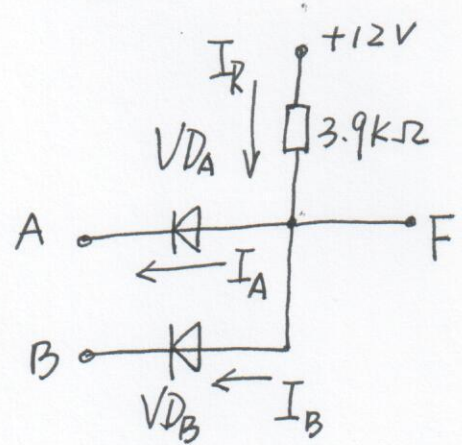 +12V
I_R
3.9KΩ
VD_A
A
F
I_A
B
VD_B
I_B